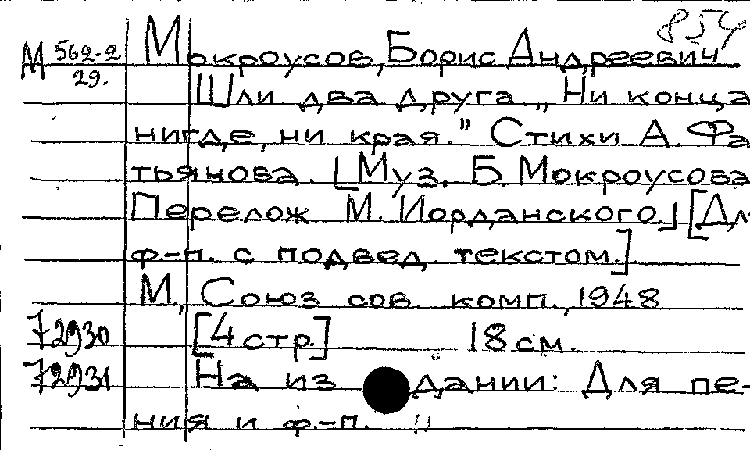 854
М 562-2 Мокроусов, Борис Андреевич
29.
Шли два друга. „Ни конца
нигде, ни края." Стихи А. Фа
тьянова. [Муз. Б. Мокроусова
Перелож М. Иорданского.] [Дл
ф-п. с подвед. текстом.]
М., Союз сов. комп., 1948
72930 [4 стр.] 18 см.
72931 На издании: Для пе-
ния и ф.-п.